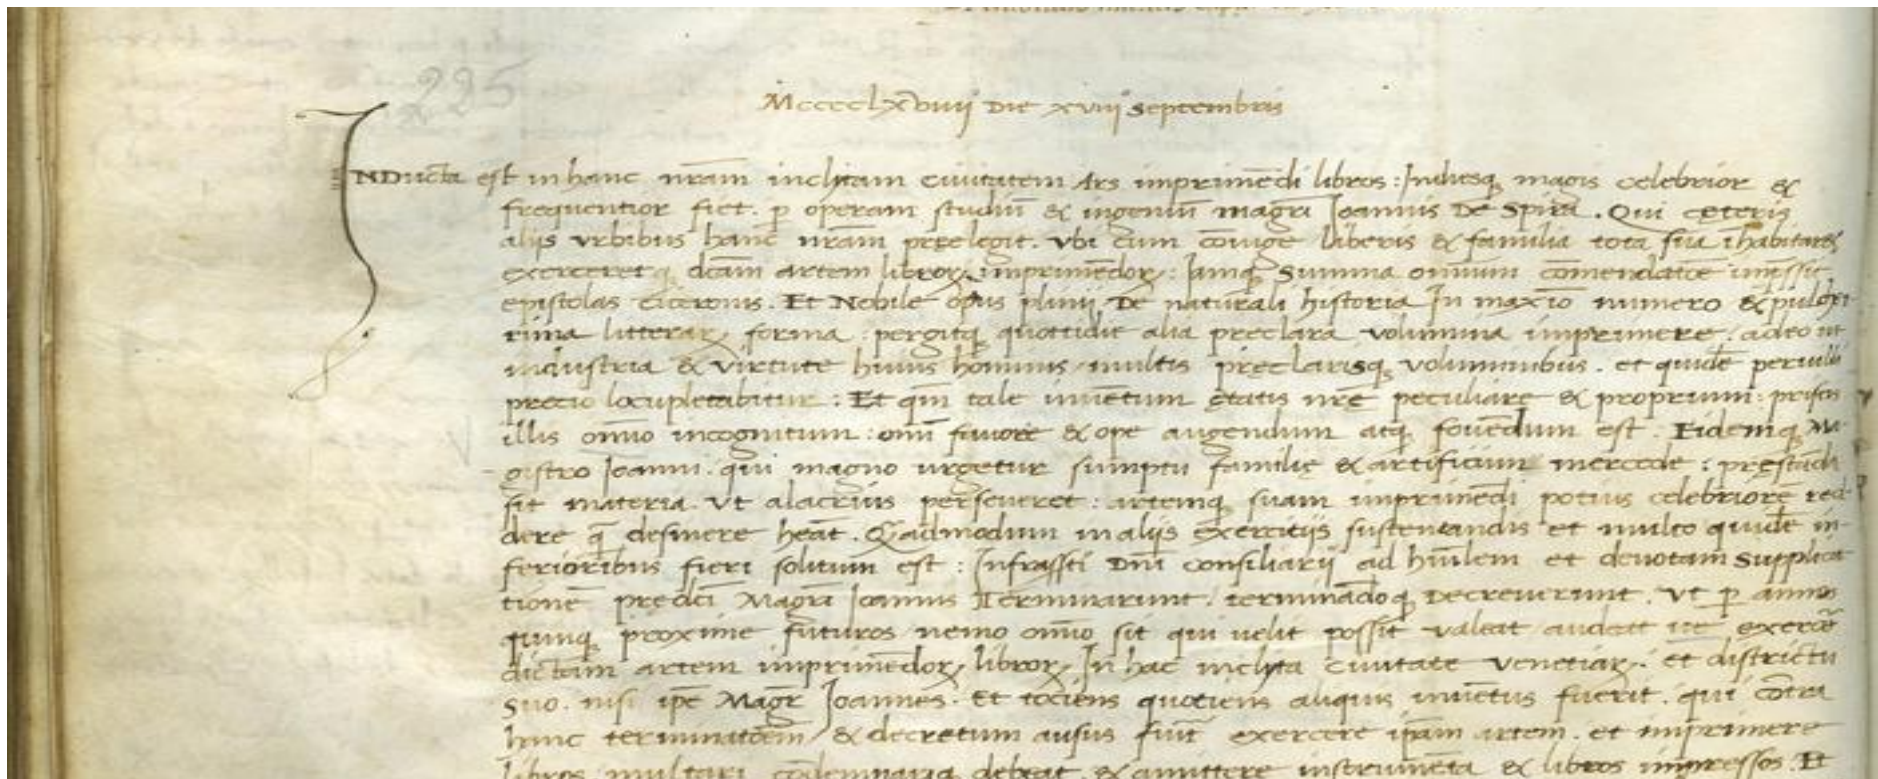 225
MccccLxviiij die xviij septembris
INDucta est in hanc nr̄am inclitam ciuitatem Ars imprimēdi libros : Indiesq; magis celebrior &
frequentior fiet . p̱ operam studiū & ingeniū magr̄i Joannis De Spira . Qui ceteris
alijs vrbibus hanc nr̄am pręelegit . vbi cum cōiuge liberis & familia tota sua īhabitaret
exerceretq; dcām artem libroꝝ imprimēdoꝝ : Jamq; summa omnium cōmendatōe imp̄ssit
epistolas ciceronis . Et Nobile opus plinij De naturali historia In maxīo numero & pulcher
rima litteraꝝ forma : pergitq; quottidie alia preclara volumina imprimere . adeo ut
industria & virtute huius hominis multis pręclarisq; voluminibus . et quidē peruili
precio locupletabitur : Et qm̄ tale inuētum ętatis nr̄ę peculiare & proprium : priscis
illis omīo incognitum : omī fauore & ope augendum atq; fouēdum est . Eidemq; Ma
gistro Joanni . qui magno urgetur sumptu familię & artificum mercede : pręstāda
sit materia . vt alacrius perseueret : artemq; suam imprimēdi potius celebriorē red
dere q̄ desinere heāt . Q̄admodum in alijs exercitijs sustentandis et multo quidē in
ferioribus fieri solitum est : Infrasscti Dn̄i consiliarij ad hūilem et deuotam supplica
tionē prędcī Magr̄i Joannis Terminarunt . terminādoq; Decreuerunt . vt p̱ annos
quinq; proxime futuros nemo omīo sit qui uelit possit valeat audeat ue exercē
dictam artem imprimēdoꝝ libroꝝ In hac inclita ciuitate venetiaꝝ . et districtu
suo . nisi ip̄e Magr̄ Joannes . Et tociens quociens aliquis inuētus fuerit . qui cōtra
hanc terminatōem & decretum ausus fūit exercere ip̄am artem . et imprimere
libros multari cōdemnariq; debeat . & amittere instrumēta & libros impressos . Et